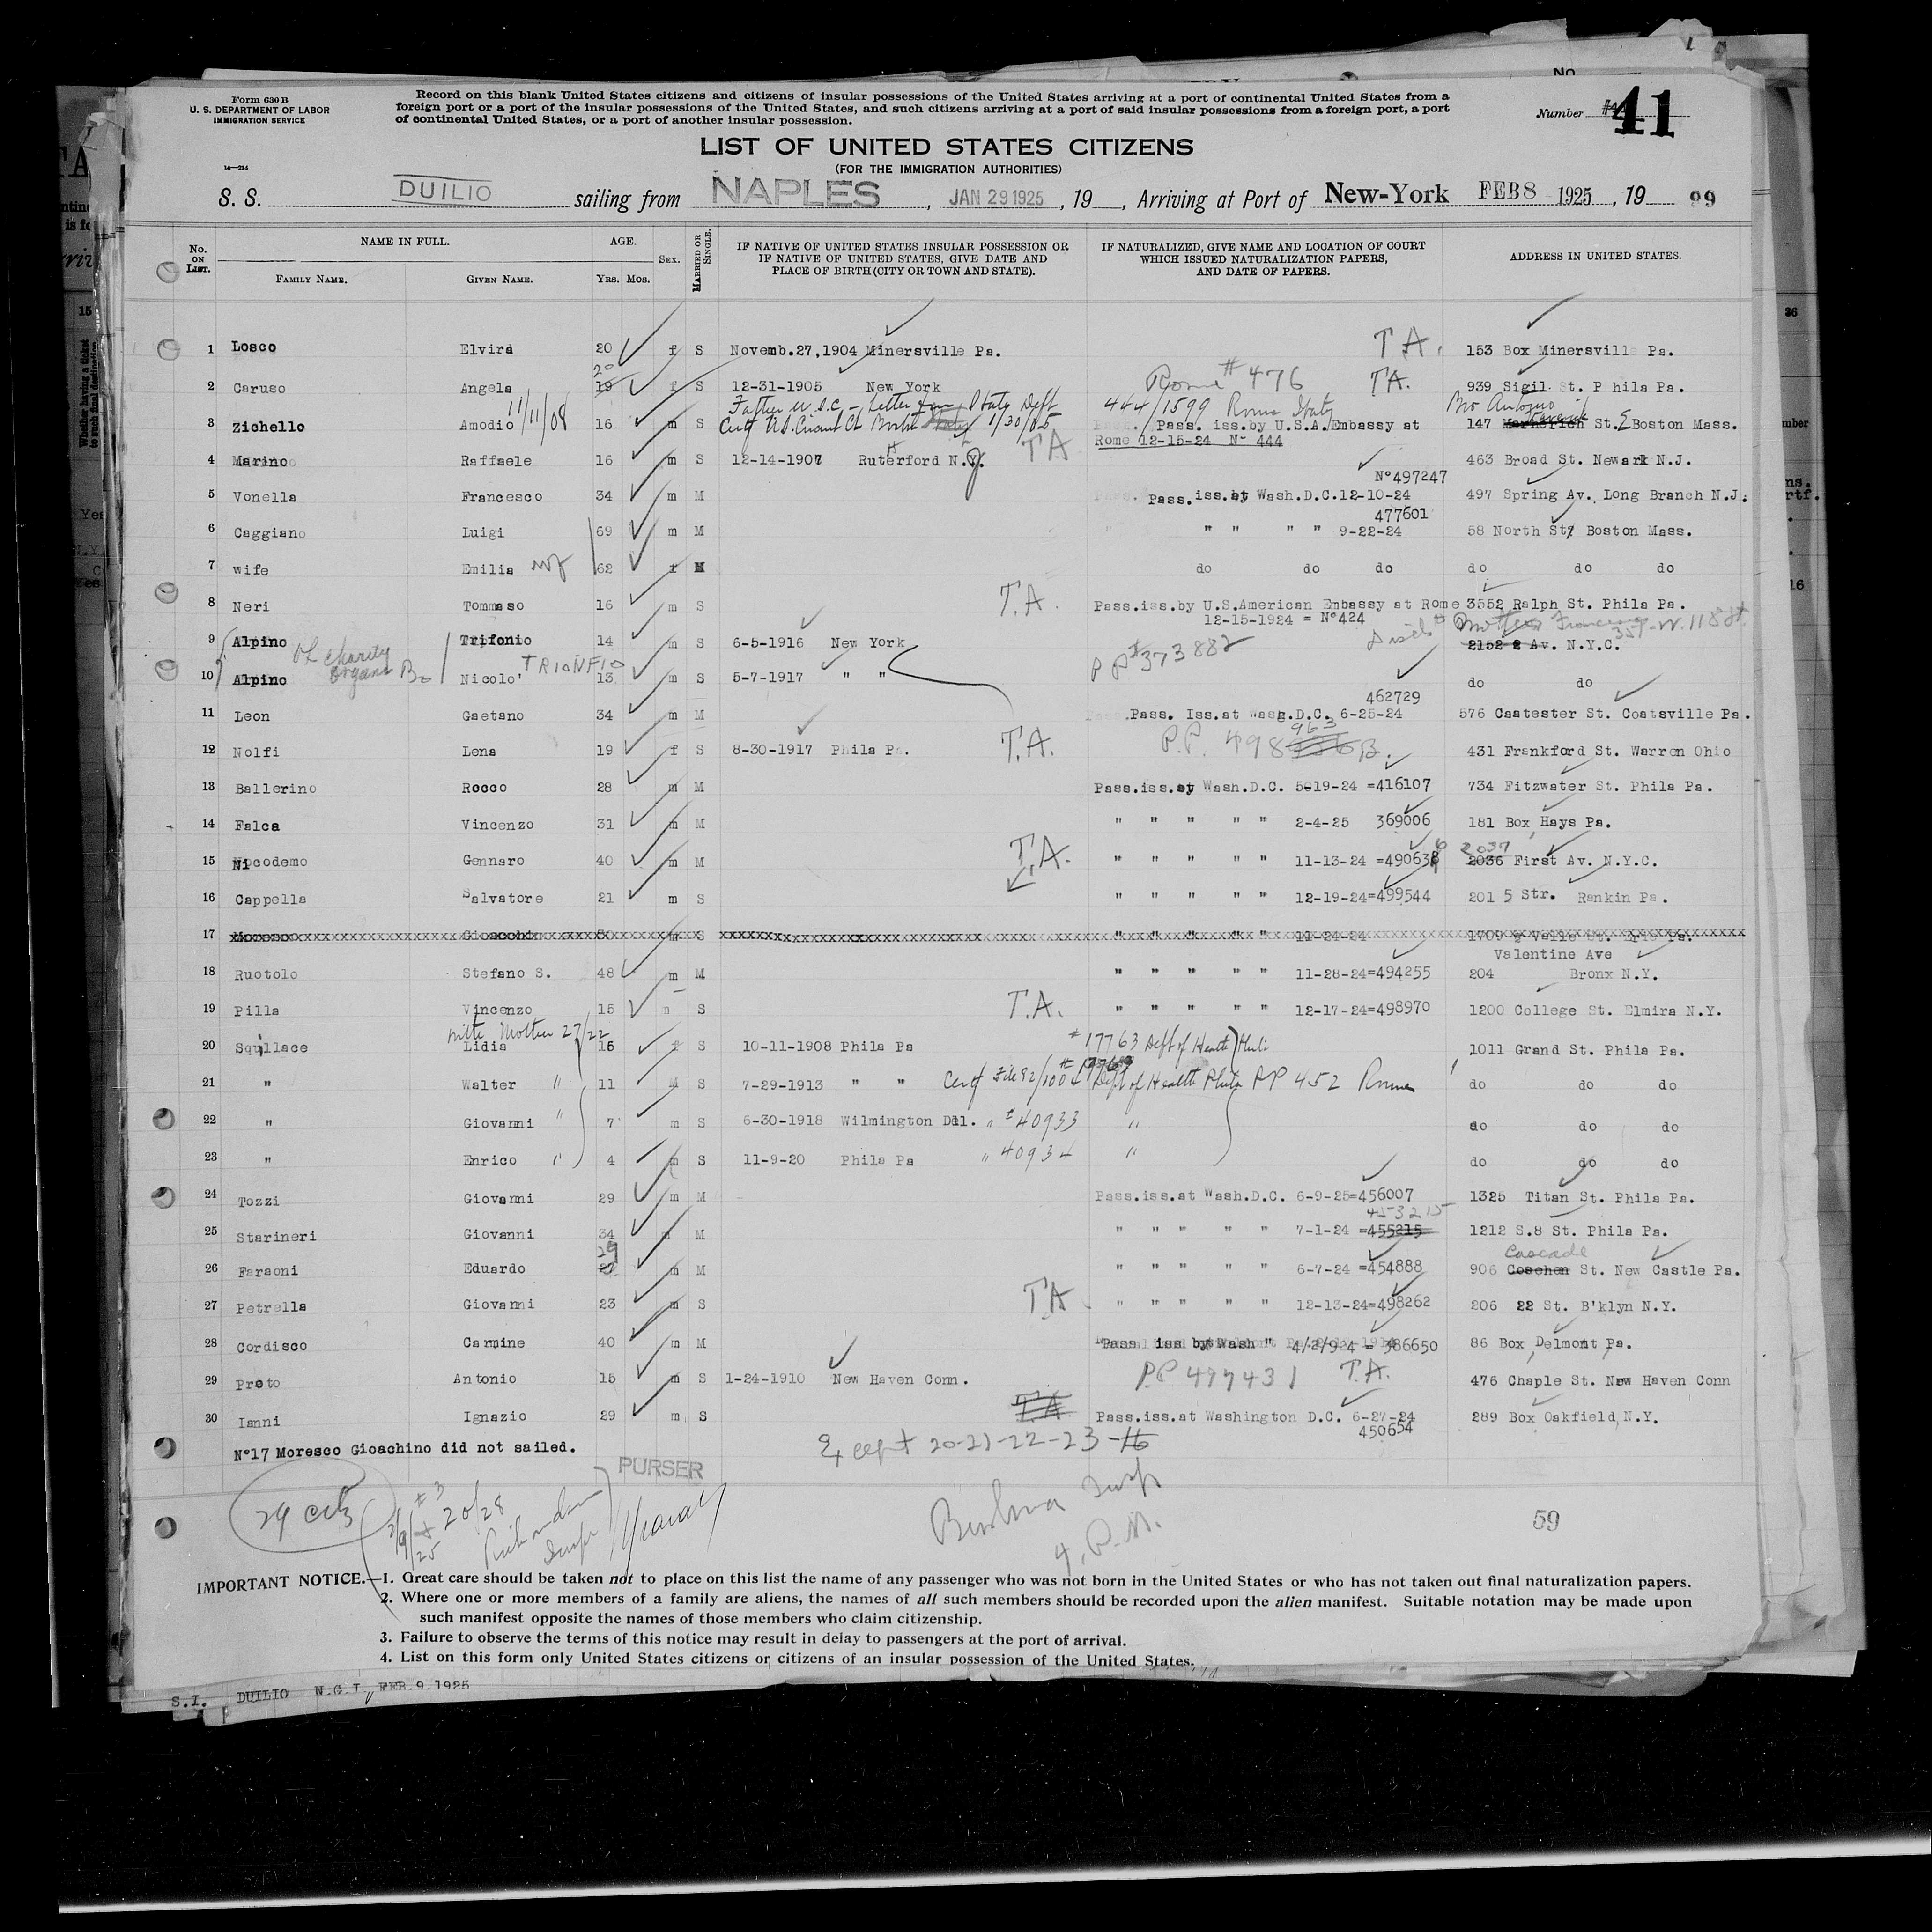 Form 630 B
U. S. DEPARTMENT OF LABOR
IMMIGRATION SERVICE
14—214
Record on this blank United States citizens and citizens of insular possessions of the United States arriving at a port of continental United States from a
foreign port or a port of the insular possessions of the United States, and such citizens arriving at a port of said insular possessions from a foreign port, a port
of continental United States, or a port of another insular possession.
Number 41
LIST OF UNITED STATES CITIZENS
(FOR THE IMMIGRATION AUTHORITIES)
S. S. DUILIO sailing from NAPLES, JAN 29 1925, 19 , Arriving at Port of New-York FEB 8 1925, 19 99
No. ON LIST. NAME IN FULL. AGE. SEX. MARRIED OR SINGLE. IF NATIVE OF UNITED STATES INSULAR POSSESSION OR IF NATIVE OF UNITED STATES, GIVE DATE AND PLACE OF BIRTH (CITY OR TOWN AND STATE). IF NATURALIZED, GIVE NAME AND LOCATION OF COURT WHICH ISSUED NATURALIZATION PAPERS, AND DATE OF PAPERS. ADDRESS IN UNITED STATES.
FAMILY NAME. GIVEN NAME. YRS. MOS.
1 Losco Elvira 20 f S Novemb.27,1904 Minersville Pa. T.A. 153 Box Minersville Pa.
20
2 Caruso Angela 19 f S 12-31-1905 New York Rome # 476 T.A. 939 Sigil St. Phila Pa.
11/11/08 Father U.S.C. - Letter State Dept 444/1599 Rome Italy Bro Antonio
3 Zichello Amodio 16 m S Pass. iss.by U.S.A.Embassy at 147 St. E Boston Mass.
Rome 12-15-24 Nº 444
4 Marino Raffaele 16 m S 12-14-1907 Ruterford N.Y. TA 463 Broad St. Newark N.J.
Nº497247
5 Vonella Francesco 34 m M Pass.iss.at Wash.D.C.12-10-24 497 Spring Av. Long Branch N.J.
477601
6 Caggiano Luigi 69 m M " " " " 9-22-24 58 North St. Boston Mass.
7 wife Emilia wf 62 f M do do do do do do
8 Neri Tommaso 16 m S T.A. Pass.iss.by U.S.American Embassy at Rome 3552 Ralph St. Phila Pa.
12-15-1924 = Nº424
Mother Francesca 357-W.118 St.
9 Alpino Trifonio 14 m S 6-5-1916 New York 2152 2 Av. N.Y.C.
TRIONFIO PP#373882
10 Alpino Nicolo' 13 m S 5-7-1917 " " do do
462729
11 Leon Gaetano 34 m M Pass. Iss.at Wash.D.C. 6-25-24 576 Caatester St. Coatsville Pa.
963
12 Nolfi Lena 19 f S 8-30-1917 Phila Pa. T.A. P.P. 498 B. 431 Frankford St. Warren Ohio
13 Ballerino Rocco 28 m M Pass.iss.at Wash.D.C. 5-19-24 =416107 734 Fitzwater St. Phila Pa.
14 Falca Vincenzo 31 m M " " " " " 2-4-25 369006 181 Box Hays Pa.
2037
15 Nicodemo Gennaro 40 m M T.A. " " " " " 11-13-24 =490638 2036 First Av. N.Y.C.
16 Cappella Salvatore 21 m S " " " " " 12-19-24=499544 201 5 Str. Rankin Pa.
17 Moresco Gioacchino 30 m S " " " " " 11-24-24
Valentine Ave
18 Ruotolo Stefano S. 48 m M " " " " " 11-28-24=494255 204 Bronx N.Y.
19 Pilla Vincenzo 15 m S T.A. " " " " " 12-17-24=498970 1200 College St. Elmira N.Y.
with Mother 27/22
20 Squllace Lidia 16 f S 10-11-1908 Phila Pa #17763 Dept of Health Phila 1011 Grand St. Phila Pa.
21 " Walter " 11 M S 7-29-1913 " " Cert File 82/1004 Dept of Health Phila PP 452 Rome do do do
22 " Giovanni " 7 m S 6-30-1918 Wilmington Del. " #40933 " do do do
23 " Enrico " 4 m S 11-9-20 Phila Pa " 40934 " do do do
24 Tozzi Giovanni 29 m M Pass.iss.at Wash.D.C. 6-9-25=456007 1325 Titan St. Phila Pa.
453215
25 Starineri Giovanni 34 m M " " " " " 7-1-24 =455215 1212 S.8 St. Phila Pa.
29 Cascade
26 Faraoni Eduardo m M " " " " " 6-7-24 =454888 906 Coschen St. New Castle Pa.
27 Petrella Giovanni 23 m S TA " " " " " 12-13-24=498262 206 22 St. B'klyn N.Y.
28 Cordisco Carmine 40 m M Pass iss by Wash " 4/2/924 = 386650 86 Box Delmont Pa.
29 Proto Antonio 15 m S 1-24-1910 New Haven Conn. P.P 497431 T.A. 476 Chaple St. New Haven Conn
30 Ianni Ignazio 29 m S T.A Pass.iss.at Washington D.C. 6-27-24 289 Box Oakfield, N.Y.
450654
Nº17 Moresco Gioachino did not sailed.
Except 20-21-22-23-16
PURSER
29 cits
#3
2/9/25 20/28
Insp
59
IMPORTANT NOTICE.—1. Great care should be taken not to place on this list the name of any passenger who was not born in the United States or who has not taken out final naturalization papers.
2. Where one or more members of a family are aliens, the names of all such members should be recorded upon the alien manifest. Suitable notation may be made upon
such manifest opposite the names of those members who claim citizenship.
3. Failure to observe the terms of this notice may result in delay to passengers at the port of arrival.
4. List on this form only United States citizens or citizens of an insular possession of the United States.
S.I. DUILIO N.G.I. FEB.9.1925